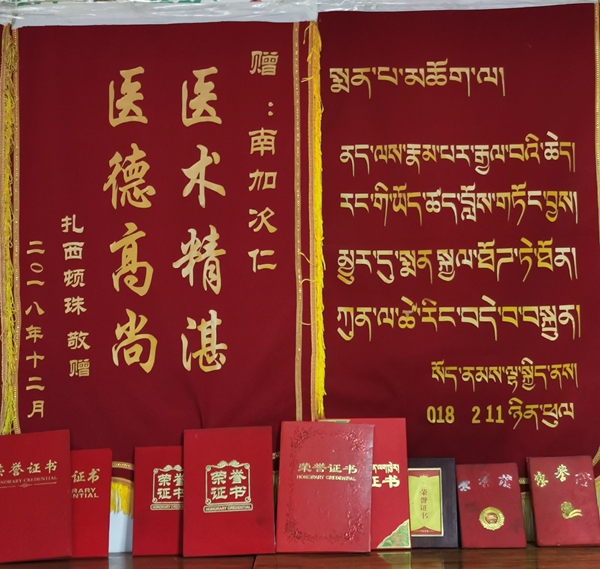 赠：南加次仁
医术精湛
医德高尚
扎西顿珠 敬赠
二〇一八年十二月
སྨན་པ་མཆོག་ལ།
ནད་ལས་རྣམ་པར་རྒྱལ་བའི་ཆེད།
རང་གི་ཡོད་ཚད་བློས་གཏོང་བྱས།
མྱུར་དུ་སྨན་སྐྱལ་ཐོཌ་ཏེ་ཐོན།
ཀུན་ལ་ཚེ་རིང་བདེ་བ་བསྐྲུན།
སོད་ནམས་ལྷ་སྐྱིད་ནས།
018 2 11 ཉིན་ཕུལ
荣誉证书
HONORARY CREDENTIAL
证书
RARY
ENTIAL
荣誉
证书
HONORARY CREDENTIAL
荣誉
证书
HONORARY CREDENTIAL
荣誉证书
HONORARY CREDENTIAL
证书
荣誉证书
荣誉证
荣誉证